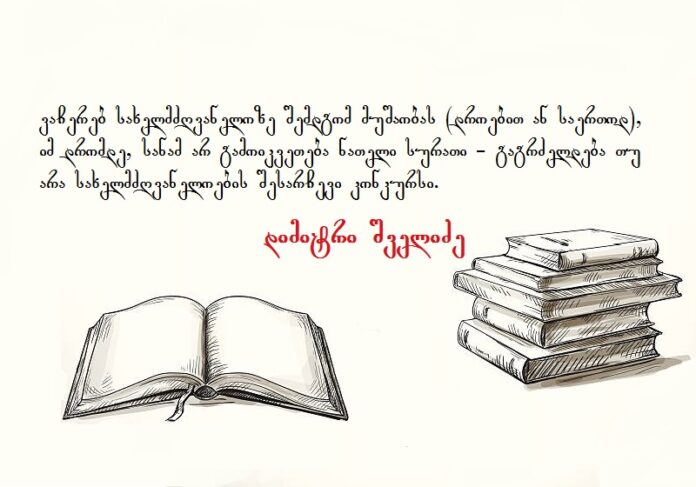 ვაჩერებ სახელმძღვანელოზე შემდგომ მუშაობას (დროებით ან საერთოდ),
იმ დრომდე, სანამ არ გამოიკვეთება ნათელი სურათი – გაგრძელდება თუ
არა სახელმძღვანელოების შესარჩევი კონკურსი.
დიმიტრი შველიძე